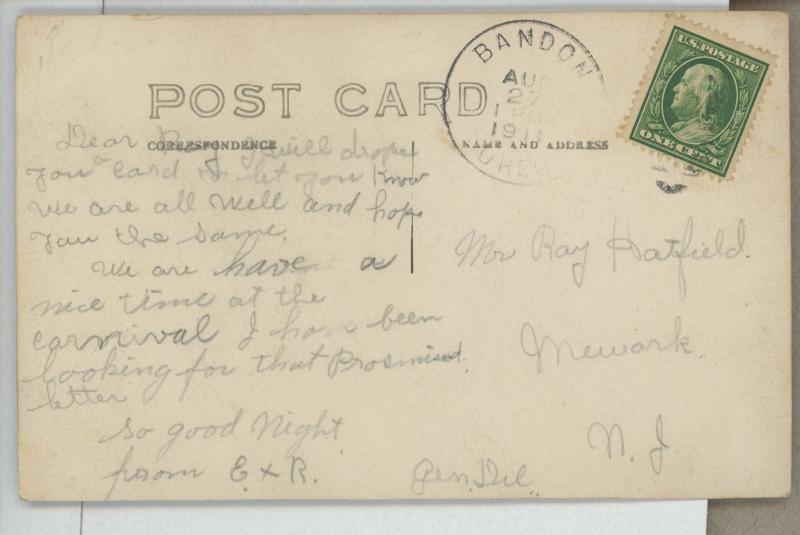 POST CARD
CORRESPONDENCE
NAME AND ADDRESS
BANDON
AUG
27
1911
OREG
U.S. POSTAGE
ONE CENT
Dear Ray I will drope
you a card to let you know
we are all well and hope
you the same.
We are have a
nice time at the
carnival I have been
looking for that Prosmised
letter
so good Night
from E + R.
Mr Ray Hatfield.
Newark.
N. J
Gen. Del.